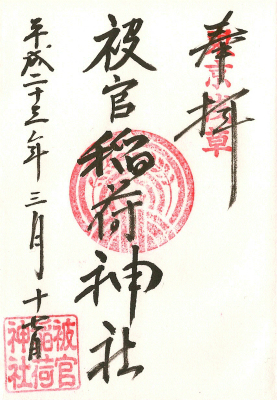 奉拝
東京浅草
被官稲荷神社
平成二十三年三月十七日
被官
稲荷
神社